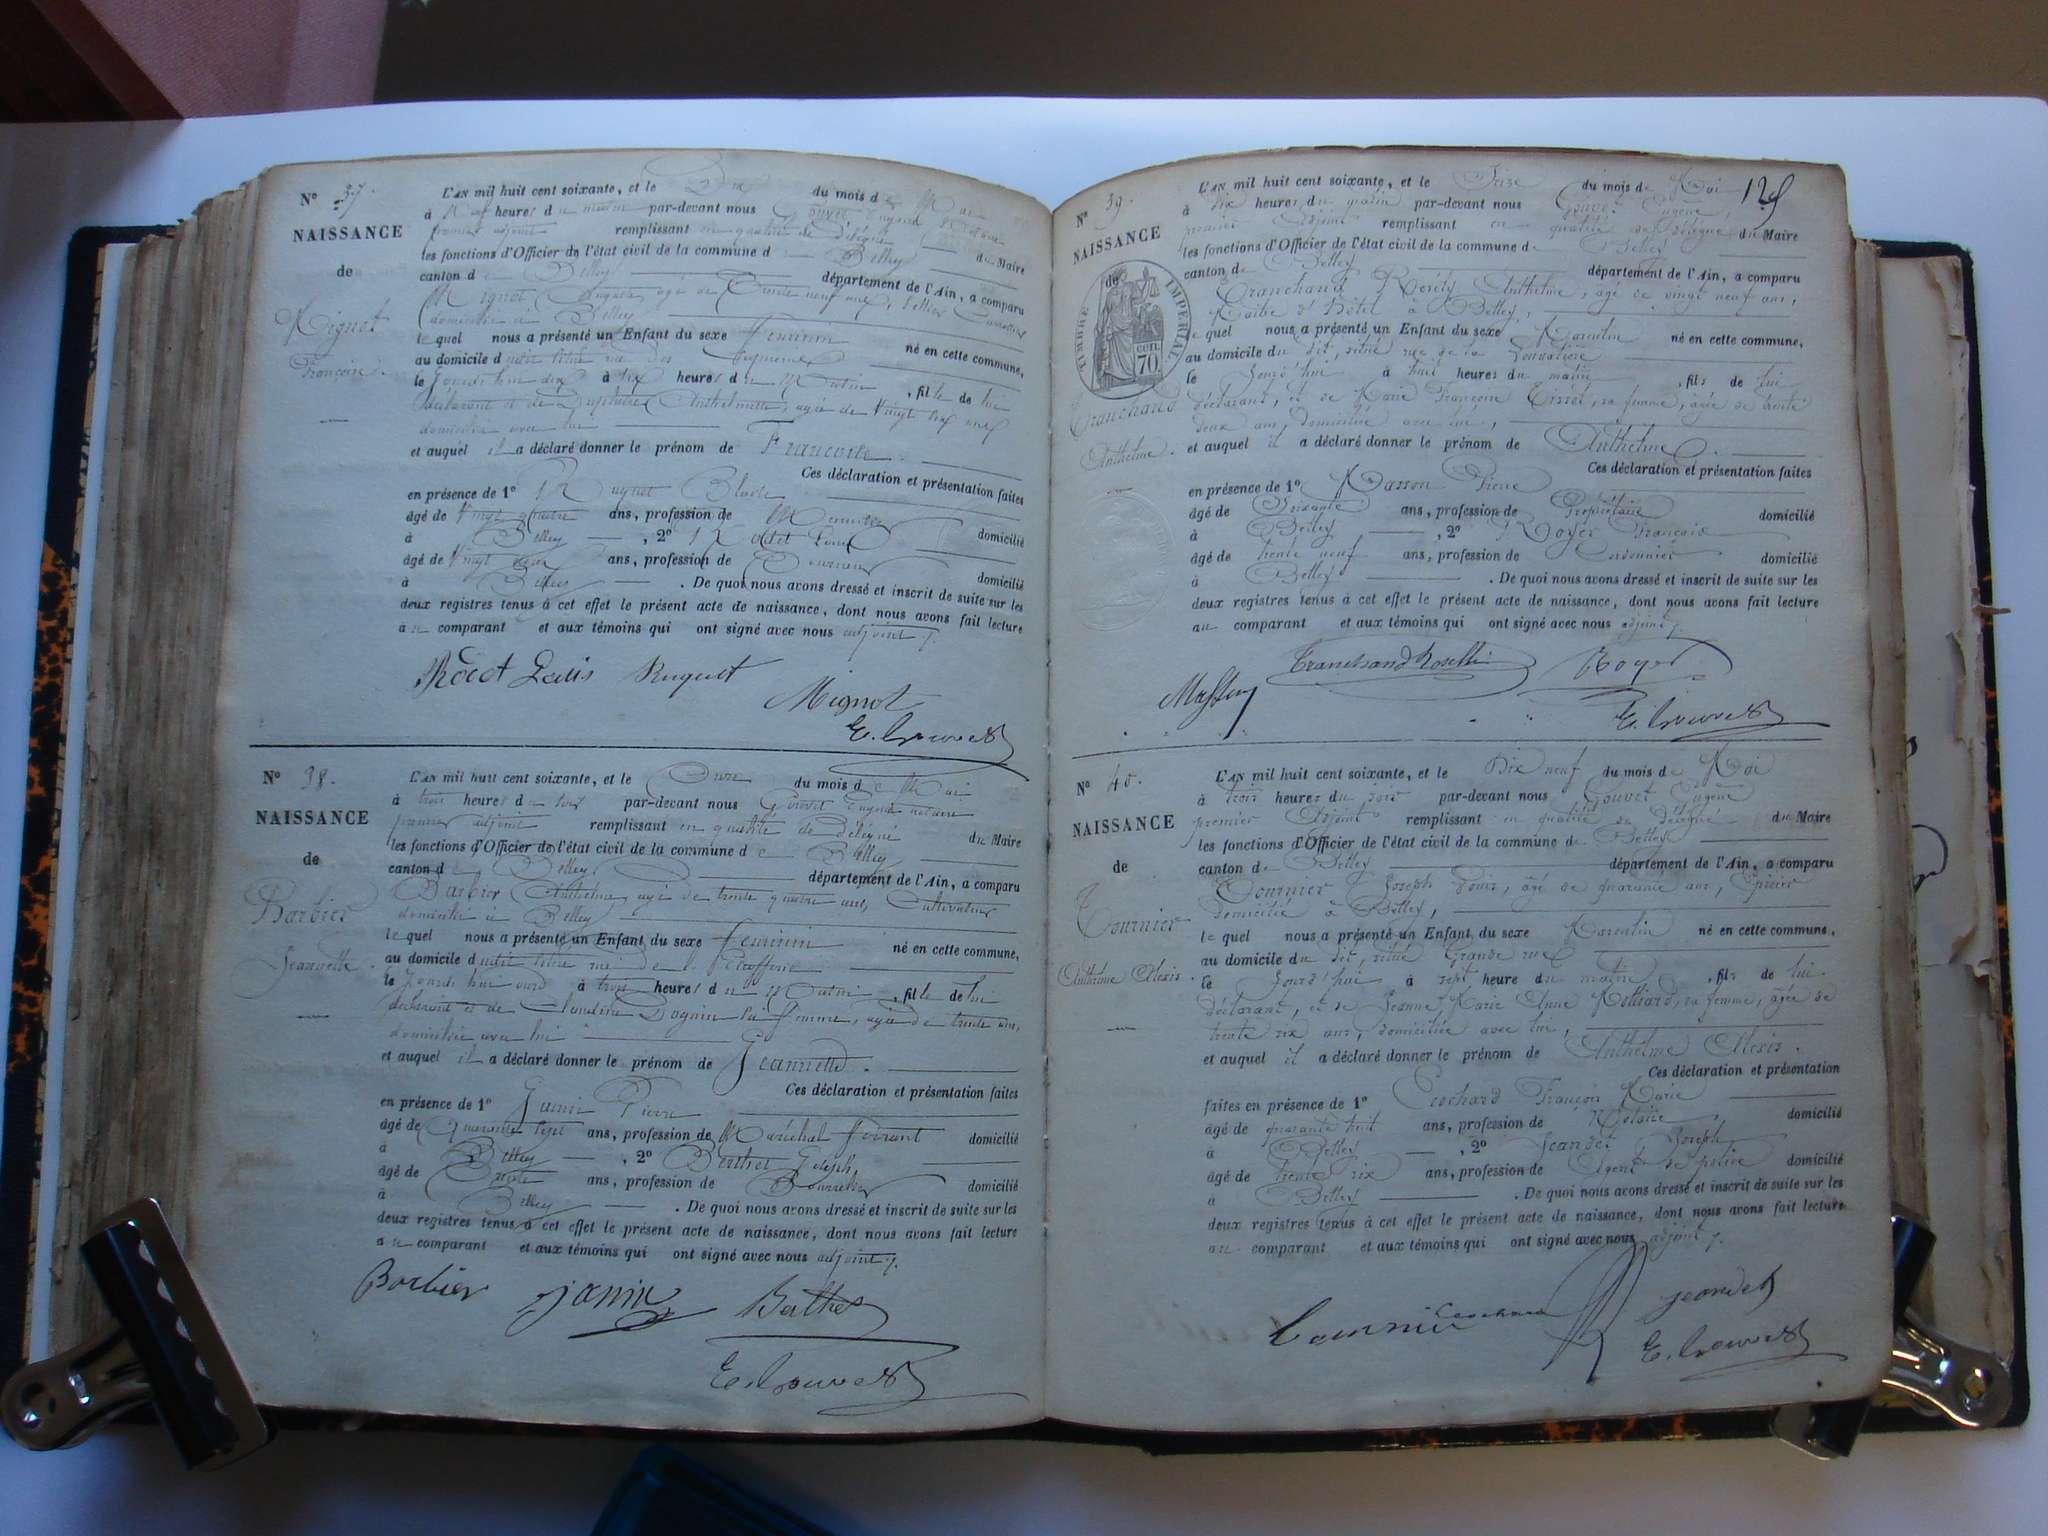 N° 37.
NAISSANCE
de
Mignot
Françoise.
L'AN mil huit cent soixante, et le Dix du mois de Mai
à neuf heures du matin par-devant nous Gouvet Eugène Notaire
premier adjoint remplissant en qualité de Délégué du Maire
les fonctions d'Officier de l'état civil de la commune de Belley
canton de Belley département de l'Ain, a comparu
Mignot agé de Trente neuf ans, Sellier
domicilié à Belley
le quel nous a présenté un Enfant du sexe féminin né en cette commune,
au domicile rue des
le Jourd'hui dix à six heures du Matin, fille de lui
déclarant et de Anthelmette, agée de Vingt six ans
domiciliée avec lui
et auquel il a déclaré donner le prénom de Françoise.
Ces déclaration et présentation faites
en présence de 1° Ruguet
âgé de Vingt quatre ans, profession de Menuisier domicilié
à Belley, 2° Rodet Louis
âgé de Vingt ans, profession de domicilié
à Belley. De quoi nous avons dressé et inscrit de suite sur les
deux registres tenus à cet effet le présent acte de naissance, dont nous avons fait lecture
au comparant et aux témoins qui ont signé avec nous adjoint
Rodet Louis Ruguet
Mignot
E. Gouvet
N° 38.
NAISSANCE
de
Barbier
Jeannette.
L'AN mil huit cent soixante, et le Onze du mois de Mai
à trois heures du soir par-devant nous Gouvet Eugène notaire
premier adjoint remplissant en qualité de Délégué du Maire
les fonctions d'Officier de l'état civil de la commune de Belley
canton de Belley département de l'Ain, a comparu
Barbier Anthelme, agé de trente quatre ans, Cultivateur
domicilié à Belley
le quel nous a présenté un Enfant du sexe féminin né en cette commune,
au domicile rue de
le Jourd'hui onze à trois heures du Matin, fille de lui
déclarant et de Claudine Dognin sa femme, agée de trente ans,
domiciliée avec lui
et auquel il a déclaré donner le prénom de Jeannette.
Ces déclaration et présentation faites
en présence de 1° Jamin Pierre
âgé de Quarante sept ans, profession de Maréchal Ferrant domicilié
à Belley, 2° Berthet Joseph,
âgé de Trente ans, profession de Bourrelier domicilié
à Belley. De quoi nous avons dressé et inscrit de suite sur les
deux registres tenus à cet effet le présent acte de naissance, dont nous avons fait lecture
au comparant et aux témoins qui ont signé avec nous adjoint
Barbier Jamin Berthet
E. Gouvet
129
N° 39.
NAISSANCE
de
TIMBRE IMPERIAL
cen
70
Tranchand
Anthelme.
L'AN mil huit cent soixante, et le Treize du mois de Mai
à Dix heures du matin par-devant nous Gouvet Eugène,
premier Adjoint remplissant en qualité de Délégué du Maire
les fonctions d'Officier de l'état civil de la commune de Belley
canton de Belley département de l'Ain, a comparu
Tranchand Rosély Anthelme, âgé de vingt neuf ans,
Maître d'Hôtel à Belley,
le quel nous a présenté un Enfant du sexe Masculin né en cette commune,
au domicile du dit, situé rue de la
le Jourd'hui à huit heures du matin, fils de lui
déclarant, et de Marie Françoise Tissot, sa femme, âgée de trente
deux ans, domiciliée avec lui,
et auquel il a déclaré donner le prénom de Anthelme.
Ces déclaration et présentation faites
en présence de 1° Masson Pierre
âgé de Soixante ans, profession de Propriétaire domicilié
à Belley, 2° Royer François
âgé de trente neuf ans, profession de Cordonnier domicilié
à Belley. De quoi nous avons dressé et inscrit de suite sur les
deux registres tenus à cet effet le présent acte de naissance, dont nous avons fait lecture
au comparant et aux témoins qui ont signé avec nous adjoint
Masson Tranchand Roselli Royer
E. Gouvet
N° 40.
NAISSANCE
de
Tournier
Anthelme Alexis.
L'AN mil huit cent soixante, et le Dix neuf du mois de Mai
à trois heures du soir par-devant nous Gouvet Eugène
premier Adjoint remplissant en qualité de Délégué du Maire
les fonctions d'Officier de l'état civil de la commune de Belley
canton de Belley département de l'Ain, a comparu
Tournier Joseph Louis, âgé de quarante ans, Epicier
domicilié à Belley,
le quel nous a présenté un Enfant du sexe Masculin né en cette commune,
au domicile du dit, situé Grande rue
le Jourd'hui à sept heure du matin, fils de lui
déclarant, et de Jeanne Marie Anne Molliard, sa femme, âgée de
trente six ans, domiciliée avec lui,
et auquel il a déclaré donner le prénom de Anthelme Alexis.
Ces déclaration et présentation
faites en présence de 1° Cochard François Marie
âgé de quarante huit ans, profession de Notaire, domicilié
à Belley, 2° Jeandet Joseph
âgé de trente six ans, profession de Agent de police domicilié
à Belley. De quoi nous avons dressé et inscrit de suite sur les
deux registres tenus à cet effet le présent acte de naissance, dont nous avons fait lecture
au comparant et aux témoins qui ont signé avec nous adjoint
Tournier Cochard Jeandet
E. Gouvet